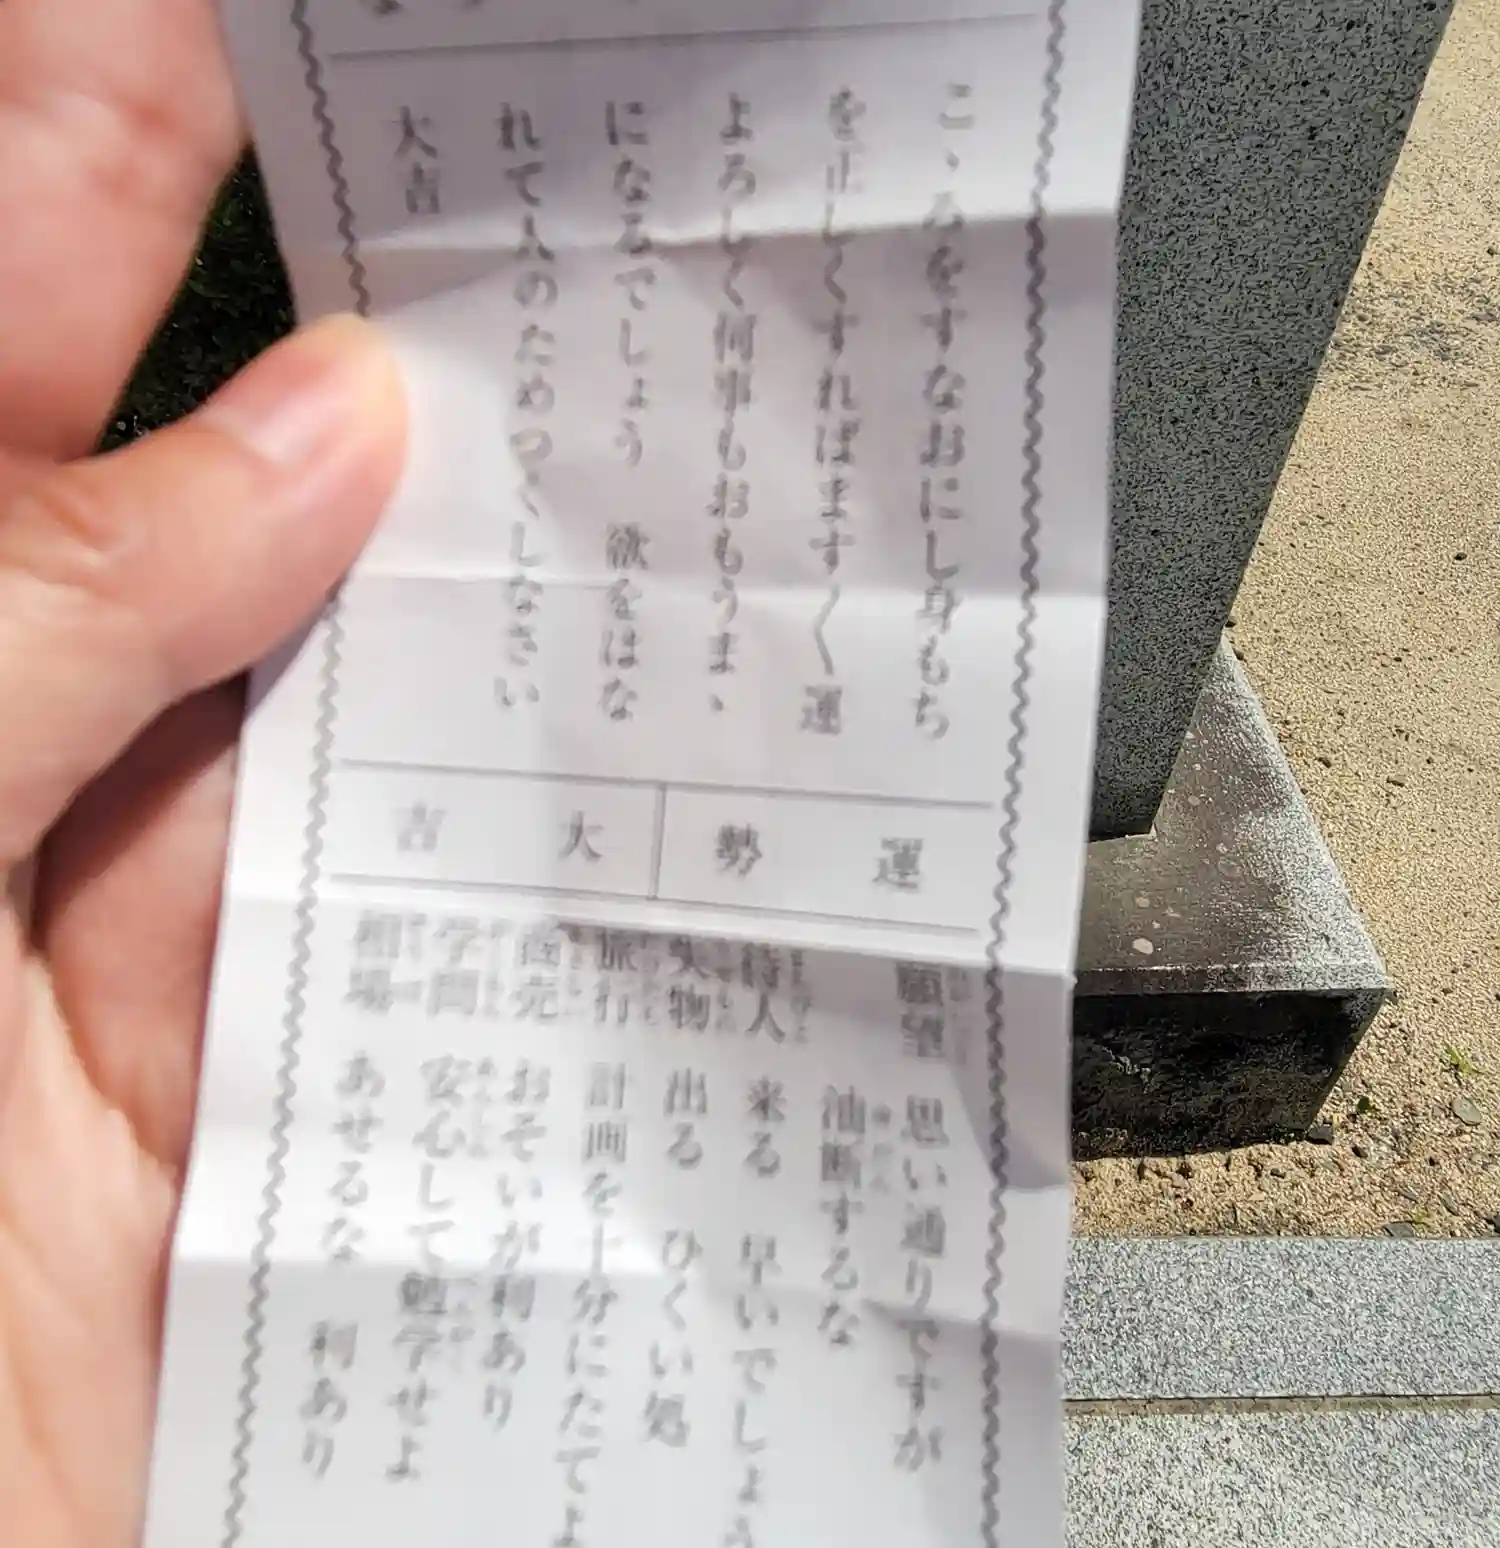 こゝろをすなおにし身もち
を正しくすればます〱運
よろしく何事もおもうまゝ
になるでしょう 欲をはな
れて人のためつくしなさい
大吉
運勢 大吉
願望 思い通りですが
油断するな
待人 来る 早いでしょう
失物 出る ひくい処
旅行 計画を十分にたてよ
商売 おそいが利あり
学問 安心して勉学せよ
相場 あせるな 利あり